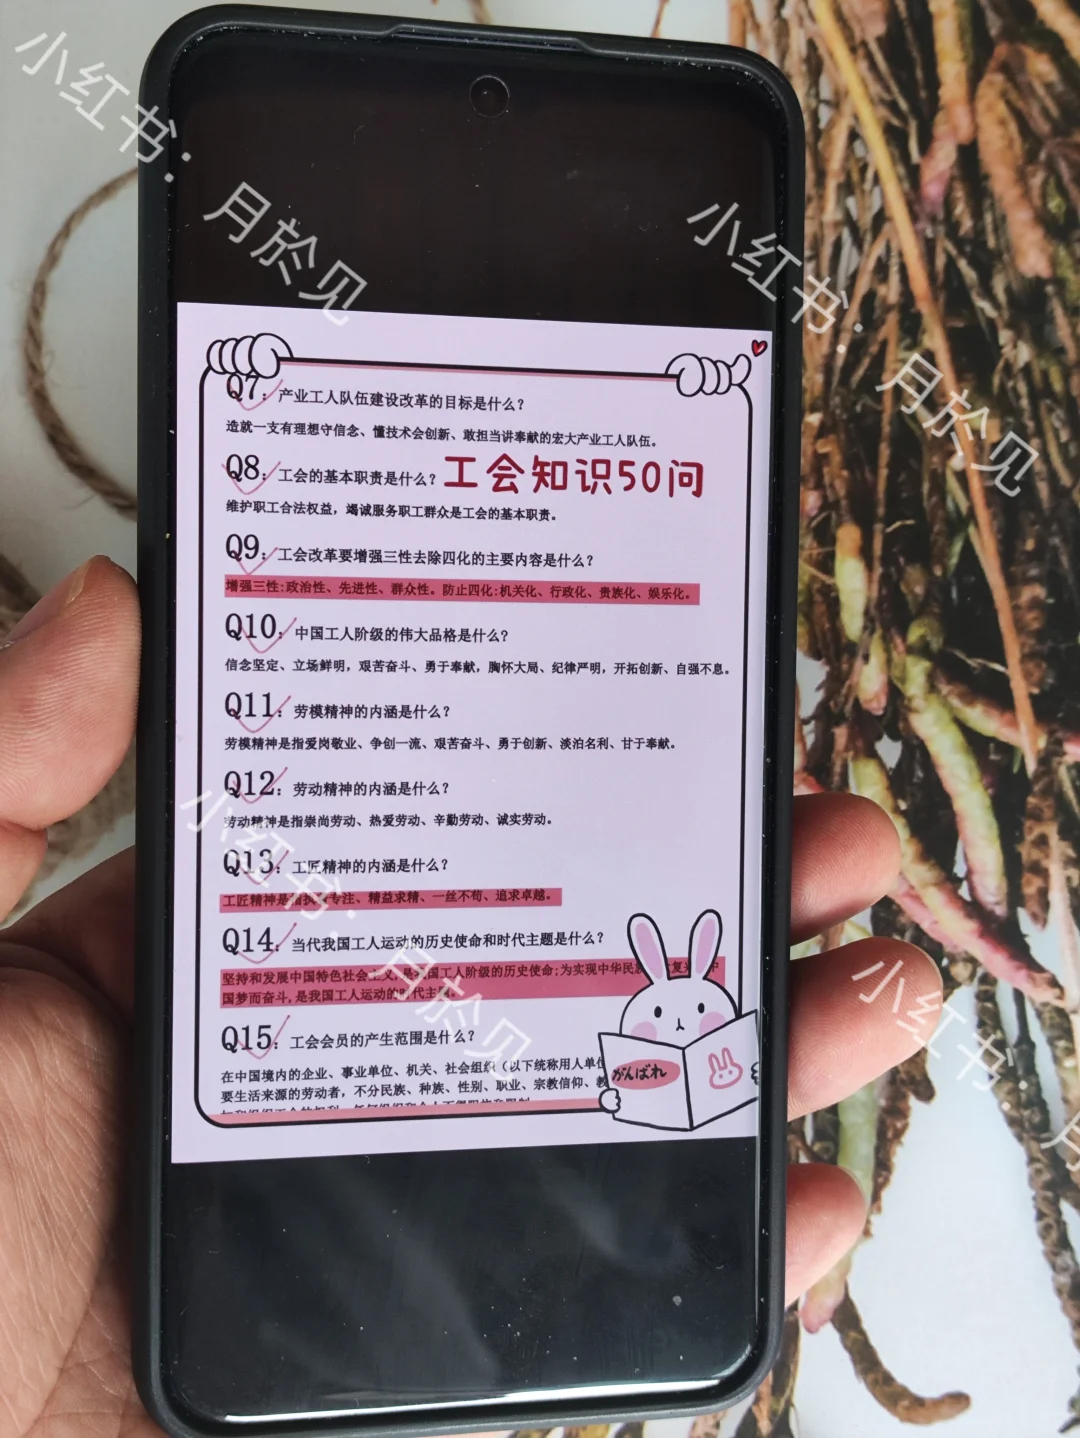 Q7：产业工人队伍建设改革的目标是什么？
造就一支有理想守信念、懂技术会创新、敢担当讲奉献的宏大产业工人队伍。
Q8：工会的基本职责是什么？
工会知识50问
维护职工合法权益，竭诚服务职工群众是工会的基本职责。
Q9：工会改革要增强三性去除四化的主要内容是什么？
增强三性:政治性、先进性、群众性。防止四化:机关化、行政化、贵族化、娱乐化。
Q10：中国工人阶级的伟大品格是什么？
信念坚定、立场鲜明，艰苦奋斗、勇于奉献，胸怀大局、纪律严明，开拓创新、自强不息。
Q11：劳模精神的内涵是什么？
劳模精神是指爱岗敬业、争创一流、艰苦奋斗、勇于创新、淡泊名利、甘于奉献。
Q12：劳动精神的内涵是什么？
劳动精神是指崇尚劳动、热爱劳动、辛勤劳动、诚实劳动。
Q13：工匠精神的内涵是什么？
工匠精神是指执 专注、精益求精、一丝不苟、追求卓越。
Q14：当代我国工人运动的历史使命和时代主题是什么？
坚持和发展中国特色社会主义,是我国工人阶级的历史使命;为实现中华民 复 中
国梦而奋斗,是我国工人运动的时代主题。
Q15：工会会员的产生范围是什么？
在中国境内的企业、事业单位、机关、社会组织（以下统称用人单位
要生活来源的劳动者，不分民族、种族、性别、职业、宗教信仰、教
がんばれ
小红书：月於见
小红书：月於见
小红书：月於见
小红书：月